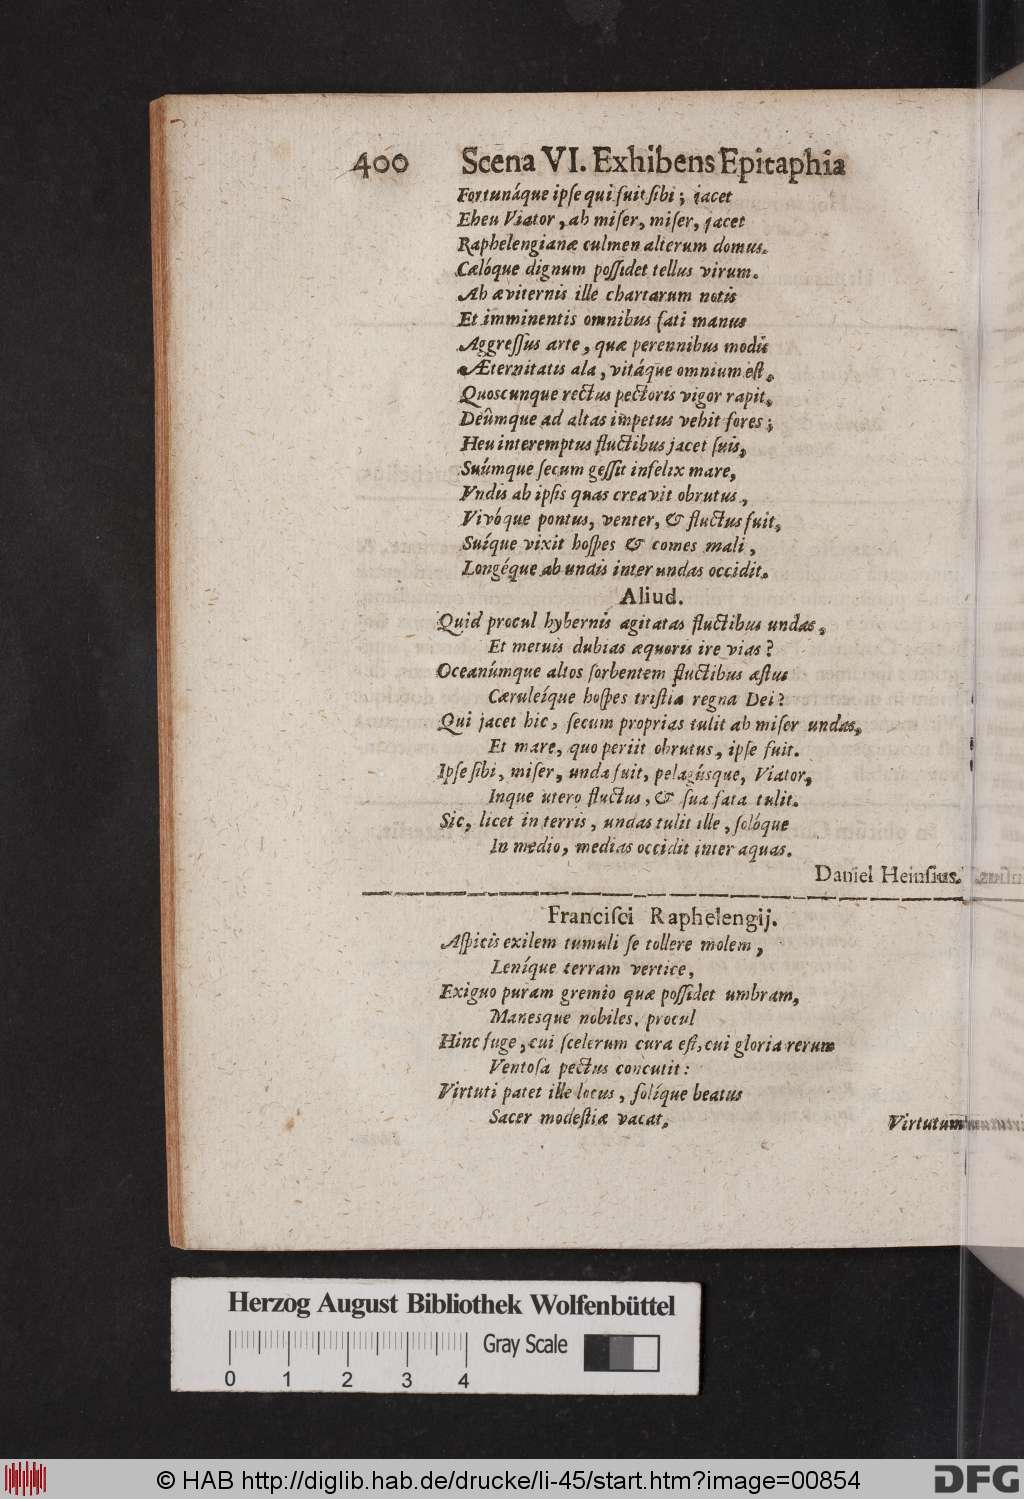 400 Scena VI. Exhibens Epitaphia
Fortunáque ipſe qui fuit ſibi; jacet
Eheu Viator, ah miſer, miſer, jacet
Raphelengianæ culmen alterum domus.
Cælóque dignum poſſidet tellus virum.
Ab æviternis ille chartarum notis
Et imminentis omnibus fati manus
Aggreſſus arte, quæ perennibus modis
Æternitatis ala, vitáque omnium eſt,
Quoscunque rectus pectoris vigor rapit,
Deûmque ad altas impetus vehit fores;
Heu interemptus fluctibus jacet ſuis,
Suúmque ſecum geſſit infelix mare,
Vndis ab ipſis quas creavit obrutus,
Vivóque pontus, venter, & fluctus fuit,
Suíque vixit hoſpes & comes mali,
Longéque ab undis inter undas occidit.
Aliud.
Quid procul hybernis agitatas fluctibus undas,
Et metuis dubias æquoris ire vias?
Oceanúmque altos ſorbentem fluctibus æſtus
Cæruleíque hoſpes triſtia regna Dei?
Qui jacet hic, ſecum proprias tulit ah miſer undas,
Et mare, quo periit obrutus, ipſe fuit.
Ipſe ſibi, miſer, unda fuit, pelagúsque, Viator,
Inque utero fluctus, & ſua fata tulit.
Sic, licet in terris, undas tulit ille, ſolóque
In medio, medias occidit inter aquas.
Daniel Heinſius.
Franciſci Raphelengij.
Aſpicis exilem tumuli ſe tollere molem,
Leníque terram vertice,
Exiguo puram gremio quæ poſſidet umbram,
Manesque nobiles. procul
Hinc fuge, cui ſcelerum cura eſt, cui gloria rerum
Ventoſa pectus concutit:
Virtuti patet ille locus, ſolíque beatus
Sacer modeſtiæ vacat,
Virtutum
Herzog August Bibliothek Wolfenbüttel
Gray Scale
0 1 2 3 4
© HAB http://diglib.hab.de/drucke/li-45/start.htm?image=00854
DFG